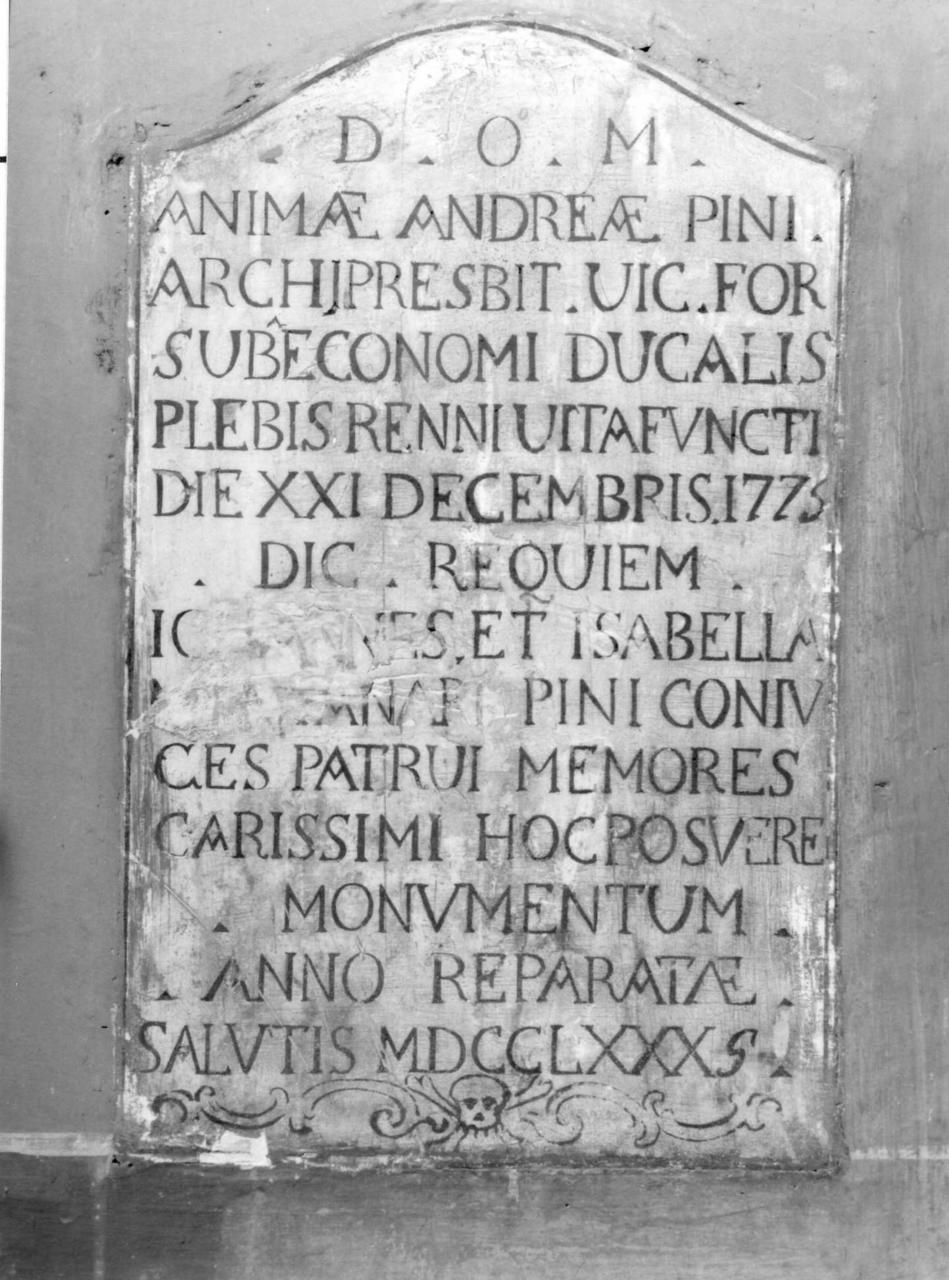 . D . O . M .
ANIMÆ ANDREÆ PINI.
ARCHIPRESBIT. UIC. FOR
SUBÊCONOMI DUCALIS
PLEBIS RENNI UITA FVNCTI
DIE XXI DECEMBRIS. 1775
. DIC . REQUIEM .
ET ISABELLA
PINI CONIV
GES PATRUI MEMORES
CARISSIMI HOC POSVERE
. MONVMENTUM .
. ANNO REPARATÆ .
SALVTIS MDCCLXXXS .